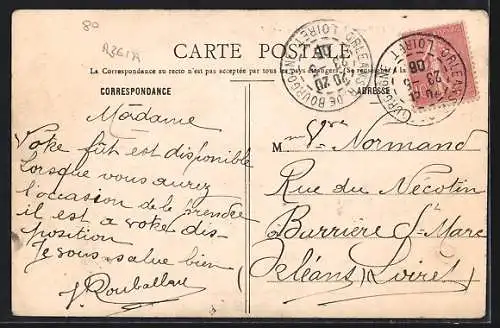 80
A2GIA
CARTE POSTALE
La Correspondance au recto n'est pas acceptée par tous les pays étrangers. Se renseigner à la
CORRESPONDANCE
ADRESSE
ORLEANS R. DE BOURGOGNE
LOIRET
20 20
23
06
Madame
Votre fût est disponible
Lorsque vous aurez
l'occasion de le prendre
il est a votre dis-
position
Je vous salue bien
Mme Vve Normand
Rue du Nécotin
Barrière St Marc
Orléans (Loiret)